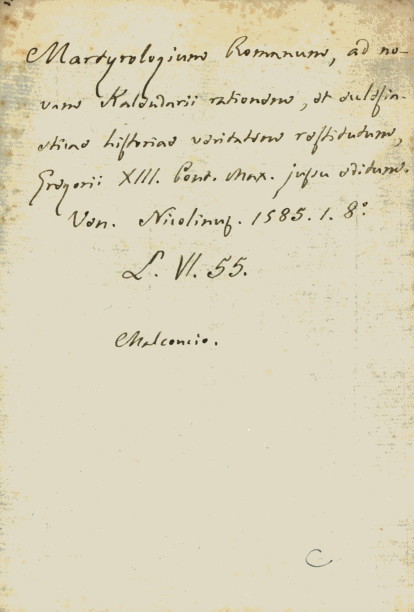 Martyrologium Romanum, ad no-
vam Kalendarii rationem, et ecclesia-
sticae historiae veritatem restitutum,
Gregorii XIII. Pont. Max. jussu editum.
Ven. Nicolinus. 1585. 1. 8.°
L. VI. 55.
Malconcio.
C